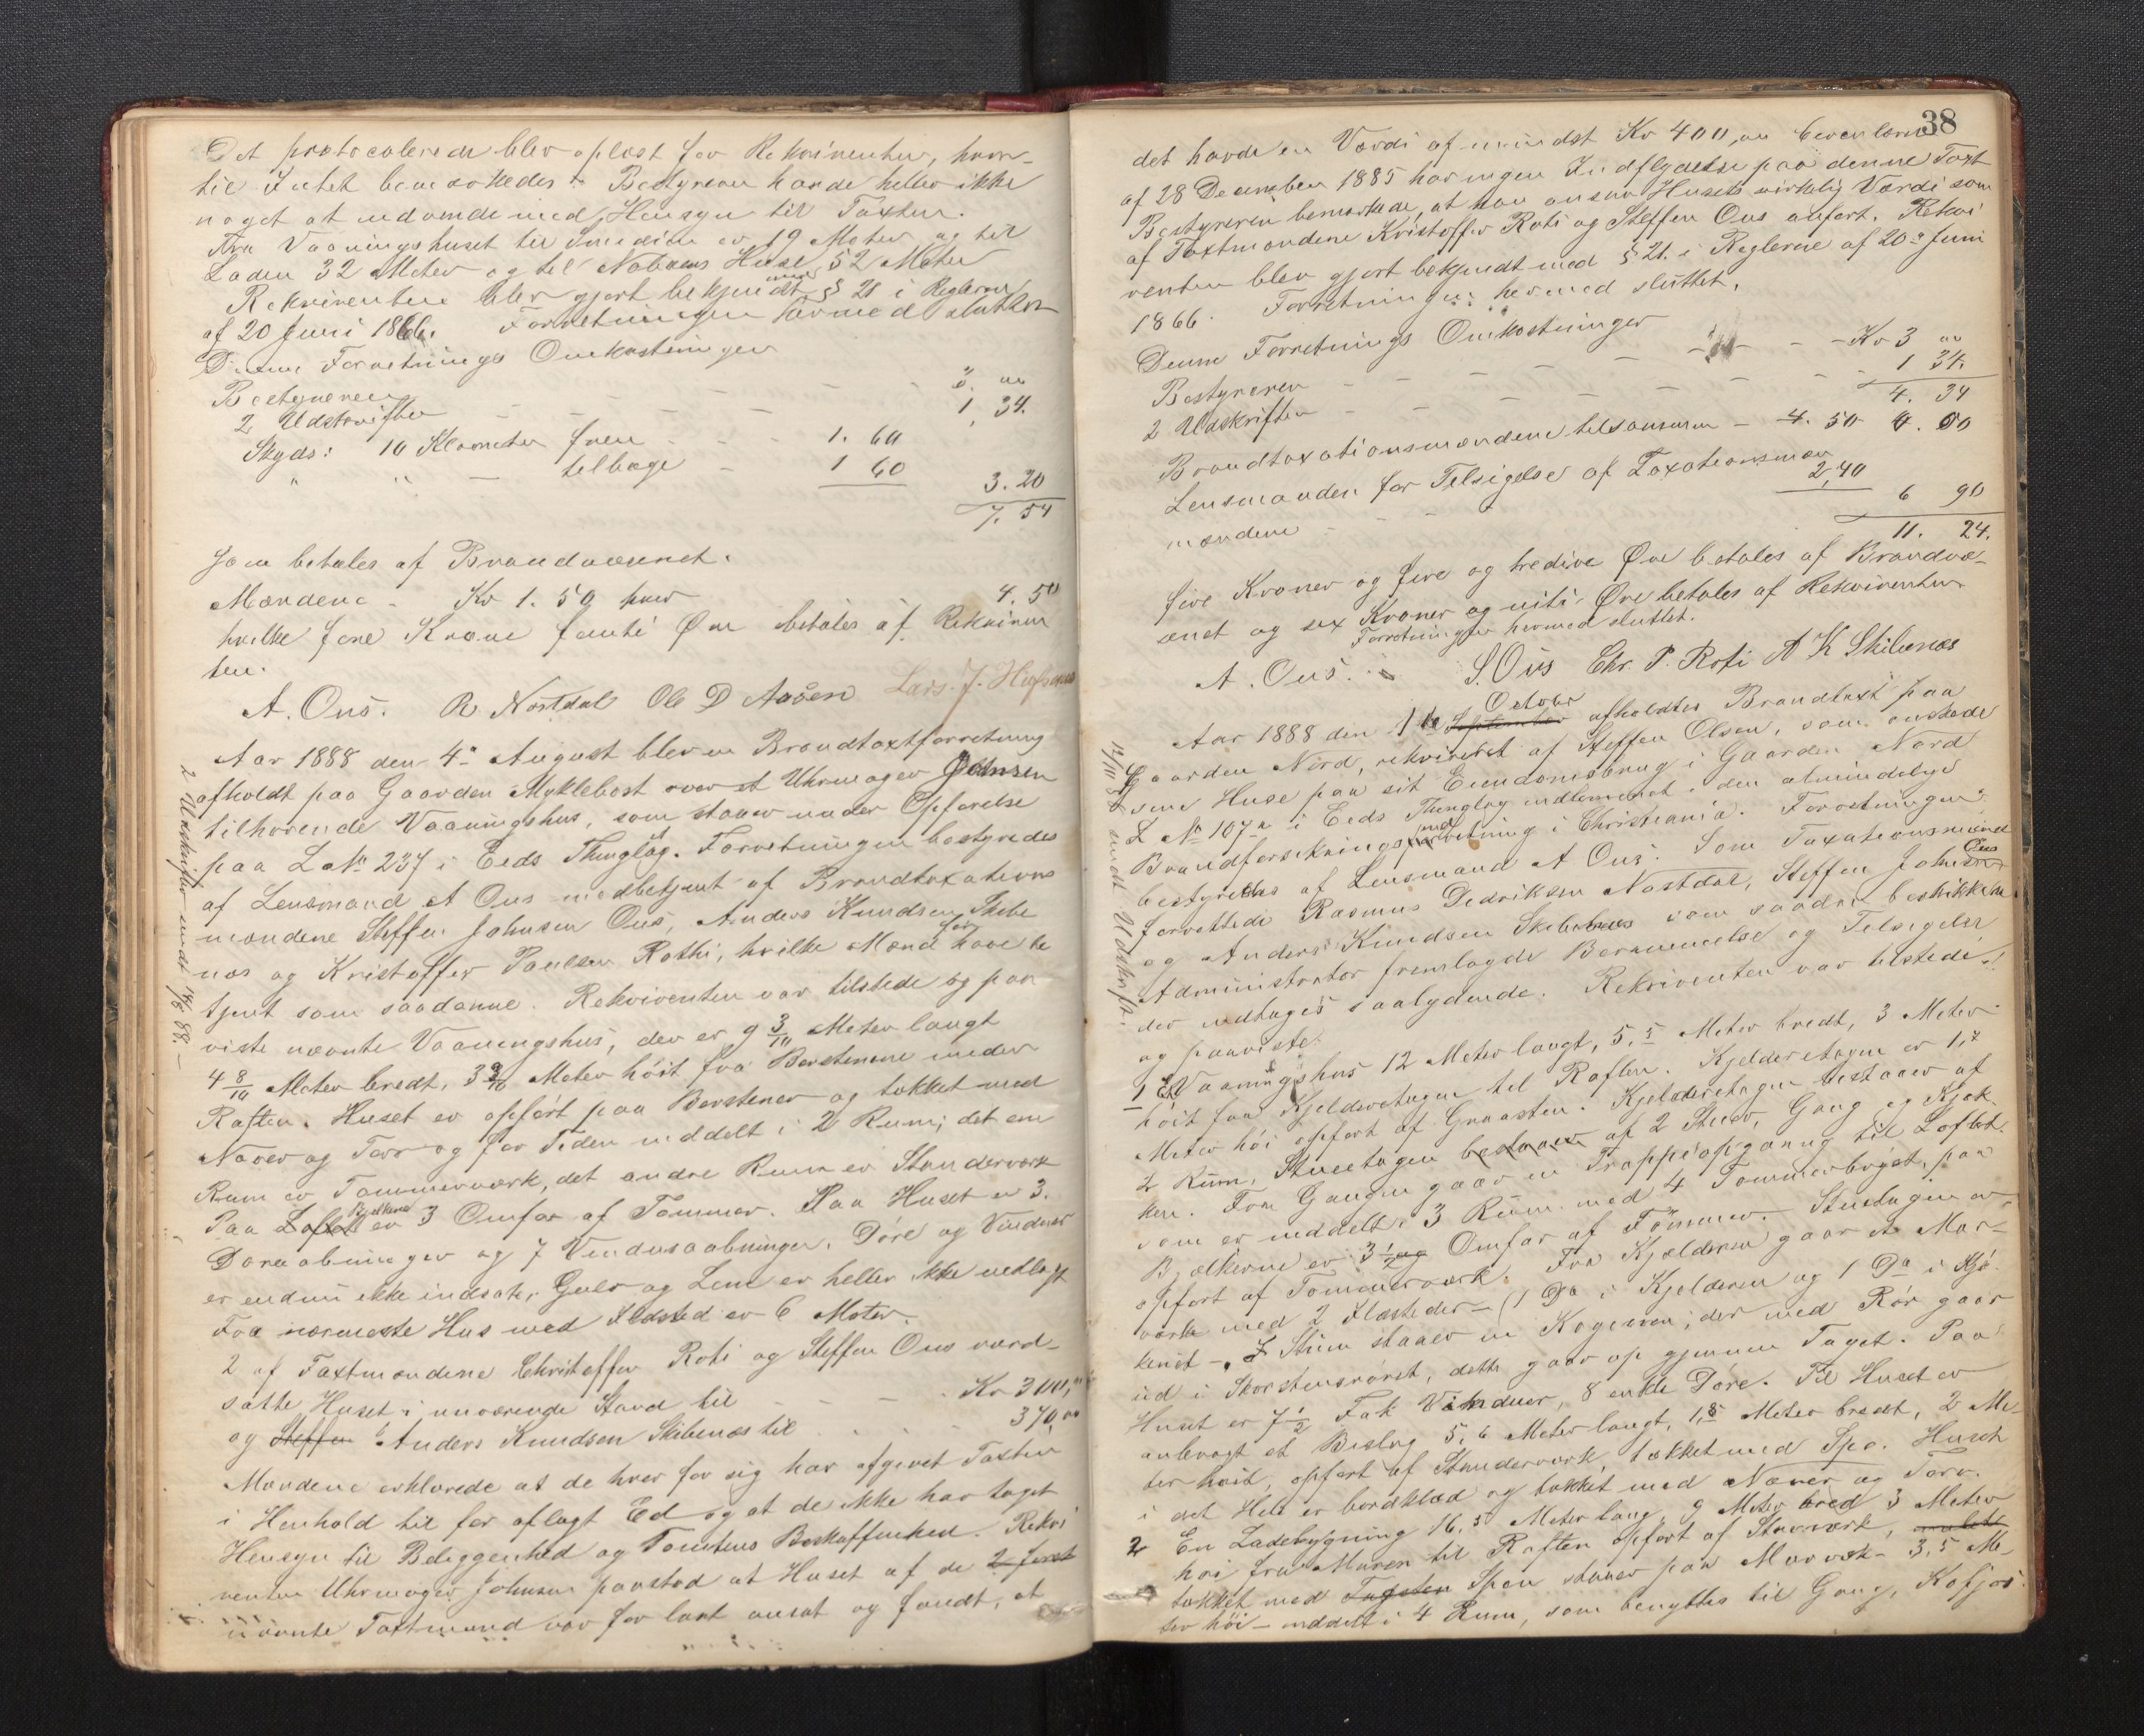 Det protocolerede blev oplæst for Rekvirenten, hvor-
til Intet bemærkedes. Bestyreren havde heller ikke
noget at udvende med Hensyn til Taxten.
Fra Vaaningshuset til Smedien er 19 Meter og til
Laden 32 Meter og til Naboens Huse 52 Meter
Rekvirenten blev gjort bekjendt med § 21 i Reglerne
af 20 Juni 1866. Forretningen hermed sluttet
Denne Forretnings Omkostninger
Bestyreren - - - - 3. "
2 Udskrifter - - - - 1. 34.
Skyds: 10 Kilometer frem - - - 1. 60
" " - tilbage - 1 60
3. 20
7. 54
som betales af Brandvæsenet.
Mændene - Kr 1. 50 hver 4. 50
hvilke fire Krone femti Øre betales af Rekviren
ten.
A. Ous. R Nostdal Ole D Aasen Lars. J.
Aar 1888 den 4de August blev en Brandtaxtforretning
afholdt paa Gaarden Myklebost over et Uhrmager Johnsen
tilhørende Vaaningshus, som staaer under Opførelse
paa L№ 237 i Eeds Thinglag. Forretningen bestyredes
af Lensmand A Ous medbetjent af Brandtaxations
mændene Steffen Johnsen Ous, Anders Knudsen Skibe
næs og Kristoffer Paulsen Rothi, hvilke Mænd før have be
tjent som saadanne. Rekvirenten var tilstede og paa
viste nævnte Vaaningshus, der er 9 3/10 Meter langt
4 8/10 Meter bredt, 3 Meter høit fra Borstenene under
Raften. Huset er opført paa Borstener og tækket med
Næver og Torv og for Tiden inddelt i 2 Rum; det ene
Rum er Tømmerværk, det andre Rum er Standerværk
Paa Loftet Bjelkene er 3 Omfar af Tømmer. Paa Huset er 3.
Døraabninger og 7 Vindusaabninger. Døre og Vinduer
er endnu ikke indsatte, Gulv og Lem er heller ikke nedlagt
Fra nærmeste Hus med Ildsted er 6 Meter.
2 af Taxtmændene Christoffer Roti og Steffen Ous værd-
satte Huset i nuværende Stand til - - - Kr 300,"
og Steffen Anders Knudsen Skibenæs til . . . 370,"
Mændene erklærede at de hver for sig har afgivet Taxten
i Henhold til før aflagt Ed og at de ikke har taget
Hensyn til Beliggenhed og Tomtens Beskaffenhed. Rekvi
renten Uhrmager Johnsen paastod at Huset af de 2 først
nævnte Taxtmænd var for lavt ansat og fandt, at
2 Udskrifter sendt 14/8 88. -
38
det havde en Værdi af mindst Kr 400,"
af 28 December 1885 har ingen Indflydelse paa denne Taxt
Bestyreren bemærkede, at han ansaa Husets virkelig Værdi som
af Taxtmændene Kristoffer Roti og Steffen Ous anført. Rekvi
renten blev gjort bekjendt med § 21. i Reglerne af 20de Juni
1866. Forretningen hermed sluttet.
Denne Forretnings Omkostninger
Bestyreren - - - - - - Kr 3 "
2 Udskrifter - - - - - - 1 34.
4. 34
Brandtaxationsmændene tilsammen - 4. 50
Lensmanden for Tilsigelse af Taxationsmæn
mændene - - - 2,40 6 90
11. 24.
fire Kroner og fire og tredive Øre betales af Brandvæ-
senet og sex Kroner og niti Øre betales af Rekvirenten
Forretningen hermed sluttet.
A. Ous. S. Ous Chr. P. Roti A K Skibenæs
Aar 1888 den September October afholdtes Brandtaxt paa
Gaarden Nord, rekvireret af Steffen Olsen, som ønskede
sine Huse paa sit Eiendomsbrug i Gaarden Nord
L № 107a i Eeds Thinglag indlemmet i den almindelige
Brandforsikringsindretning i Christiania. Forretningen
bestyredes af Lensmand A Ous. Som Taxationsmænd
forrettede Rasmus Dedriksen Nostdal, Steffen Johnsen Ous
og Anders Knudsen Skibenæs som saadan beskikkede
Administrator fremlagde Berammelse og Tilsigelse
der indtages saalydende. Rekvirenten var tilstede
og paaviste.
1 Et Vaaningshus 12 Meter langt, 5,5 Meter bredt, 3 Meter
høit fra Kjelderetagen til Raften. Kjelderetagen er 1,7
Meter høi opført af Graasten. Kjelderetagen bestaaer af
2 Rum, Stueetagen bestaaer af 2 Stuer, Gang og Kjøk-
ken. Fra Gangen gaar en Trappeopgang til Loftet,
som er inddelt i 3 Rum med 4 Tømmerbryst, paa
Bjælkerne er 3 1/2 Omfar af Tømmer. Stueetagen er
opført af Tømmerværk. Fra Kjælderen gaar et Mur-
værk med 2 Ildsteder - (1 Do i Kjelderen og 1 Do i Kjø-
kenet -. I Stuen staaer en Kogeovn, der med Rør gaar
ud i Skorstensrøret, dette gaar op gjennem Taget. Paa
Huset er 7 1/2 Fak Vinduer, 8 enkle Døre. Til Huset er
anbragt et Bislag 5,6 Meter langt, 1,8 Meter bredt, 2 Me-
ter høit, opført af Standerværk, tækket med Spo. Huset
i det Hele er bordklæd og tækket med Næver og Torv.
2 En Ladebygning 16,5 Meter lang, 9 Meter bred 3 Meter
høi fra Muren til Raften opført af Stavværk,
tækket med Tagsten Spon staaer paa Murværk 3,5 Me-
ter høi - inddelt i 4 Rum, som benyttes til Gang, Kofjøs
sendt Udskrift.